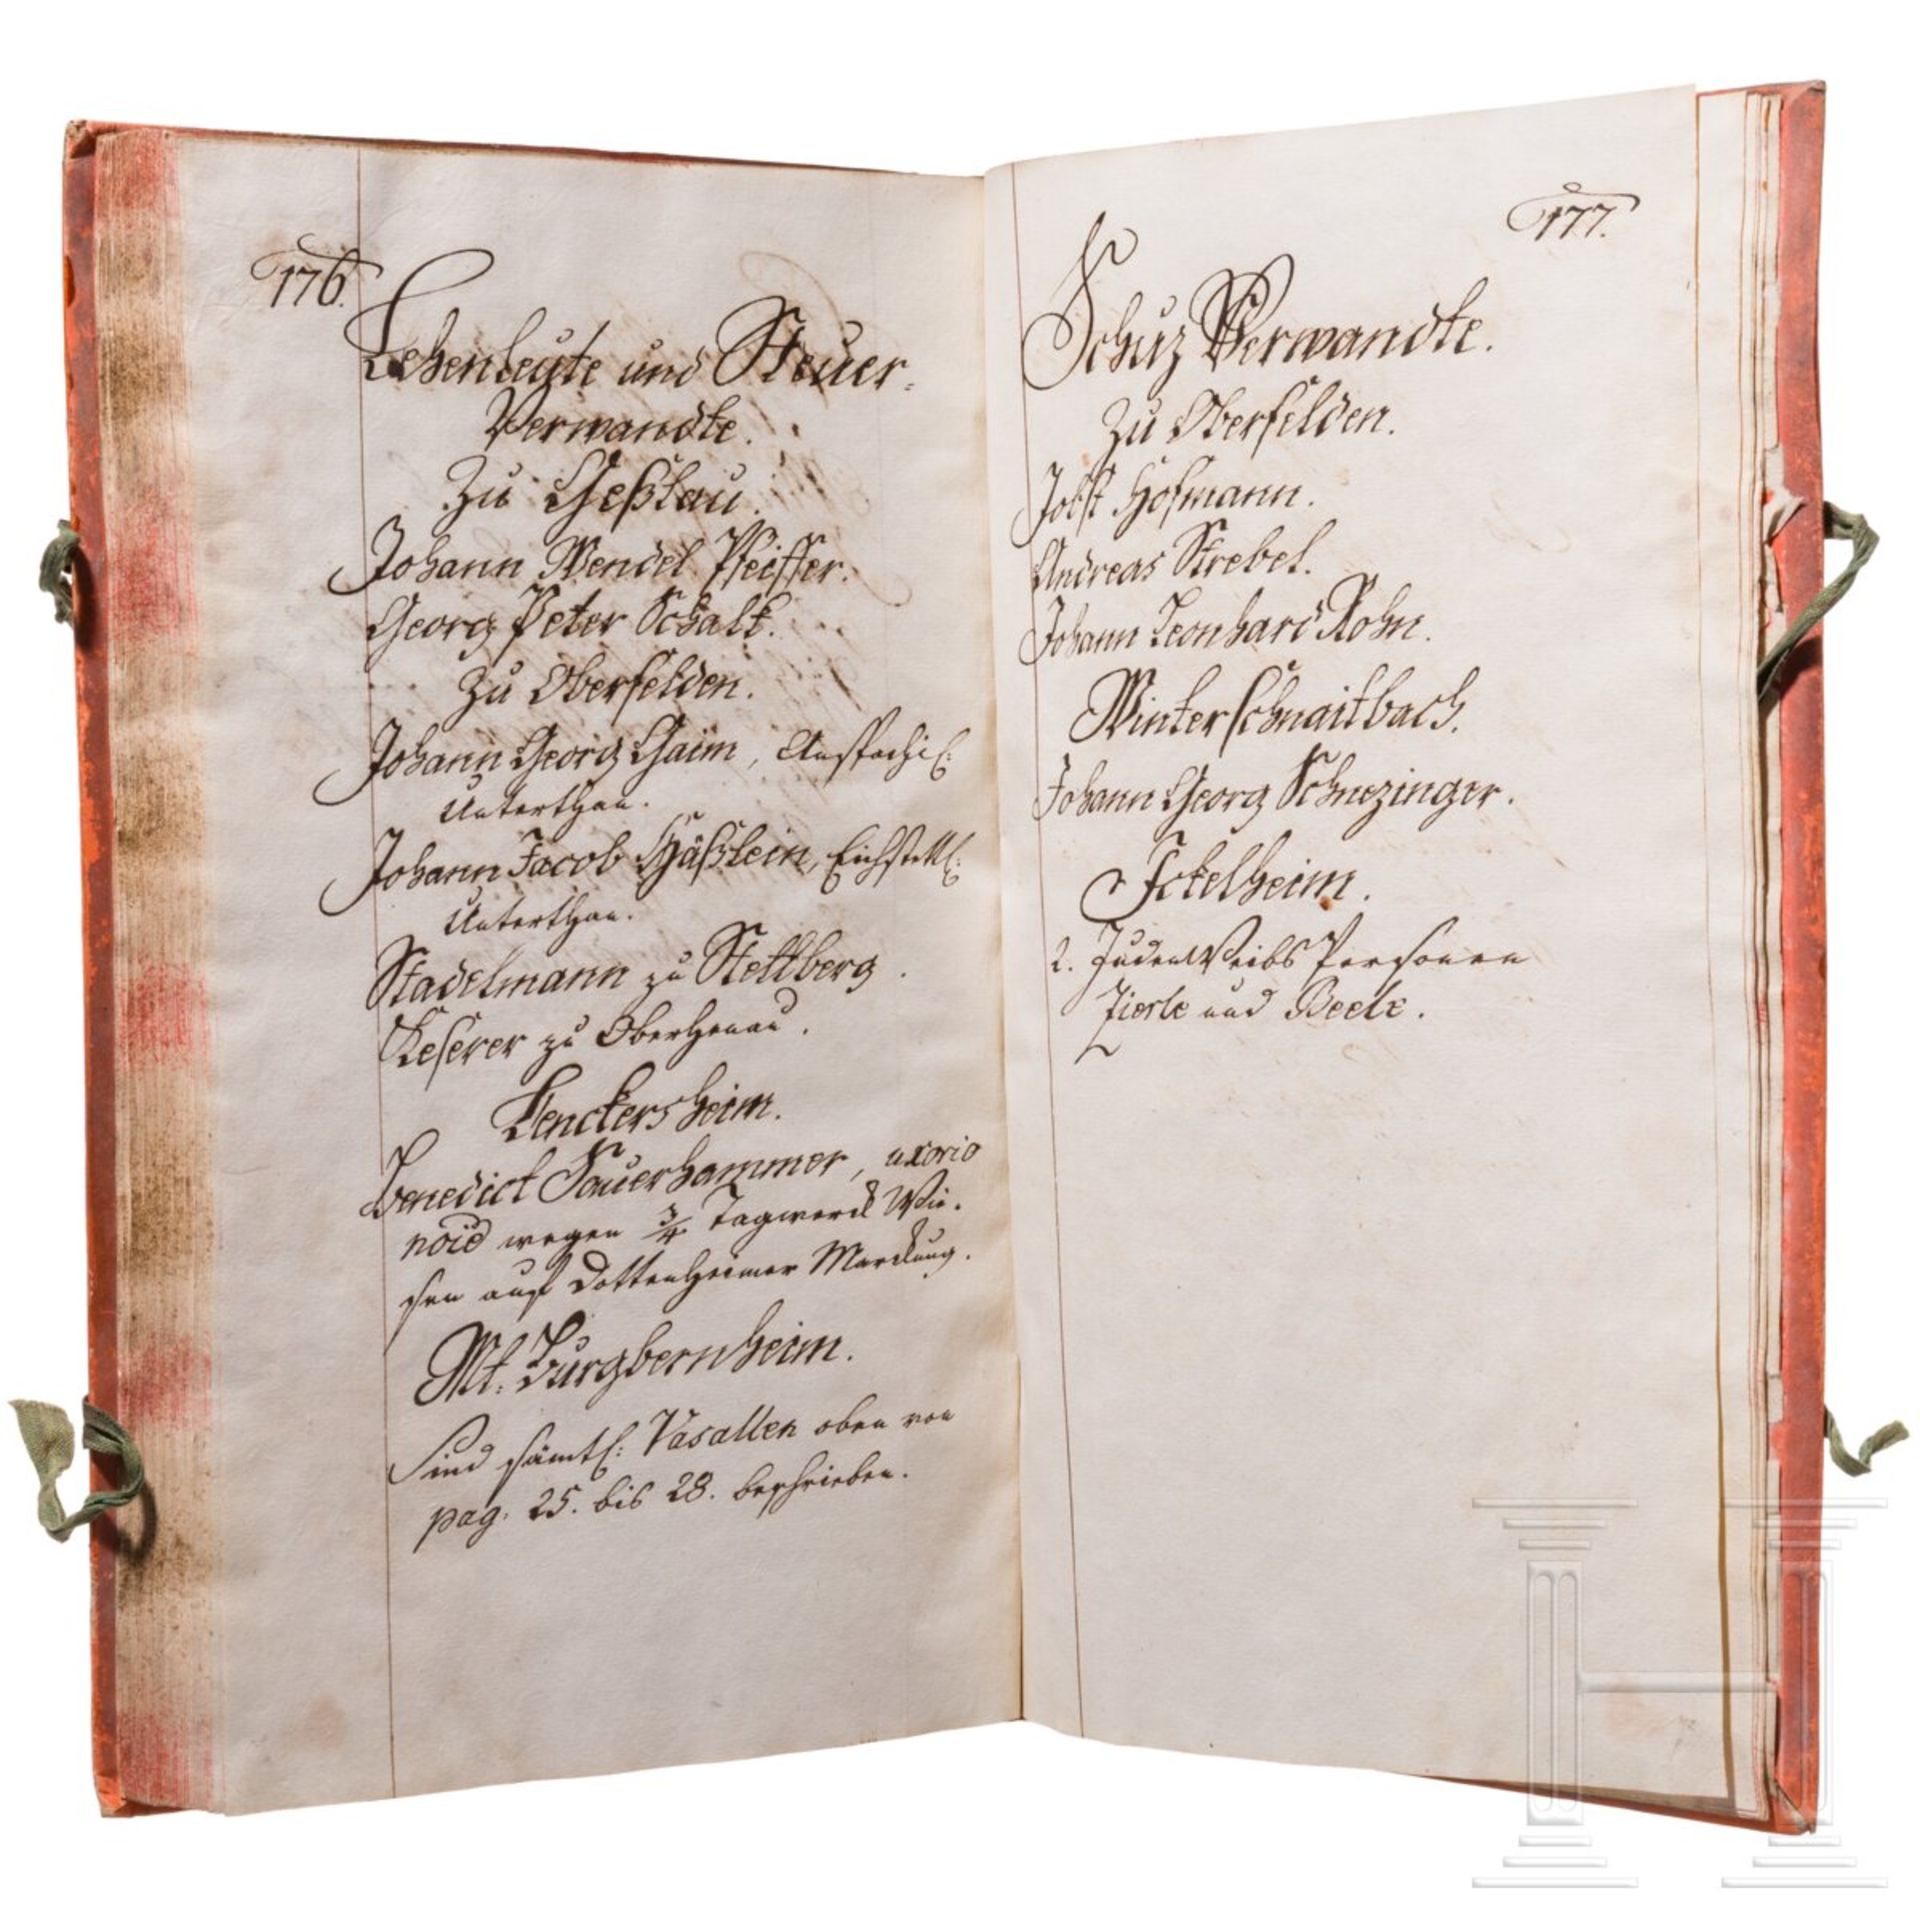 176.
Lehenleute und Steuer-
Verwandte.
Zu Geßlau.
Johann Wendel Pfeiffer.
Georg Peter Schalk.
Zu Oberfelden.
Johann Georg Gaim, Anspachis:
Unterthan.
Johann Jacob Häßlein, Eichstettis:
Unterthan.
Stadelmann zu Stettberg.
Keserer zu Oberhenau.
Lenckersheim.
Benedict Sauerhammer, uxorio
noïe wegen 3/4 Tagwerck Wie-
sen auf Dottenheimer Marckung.
Mt. Burgbernheim.
Sind sämtl: Vasallen oben von
pag. 25. bis 28. beschrieben.
177.
Schuz Verwandte.
Zu Oberfelden.
Jobst Hofmann.
Andreas Strebel.
Johann Leonhard Rohn.
Winterschnaitbach.
Johann Georg Schnezinger.
Ickelheim.
2. Juden Weibs Personen
Zierle und Beele.